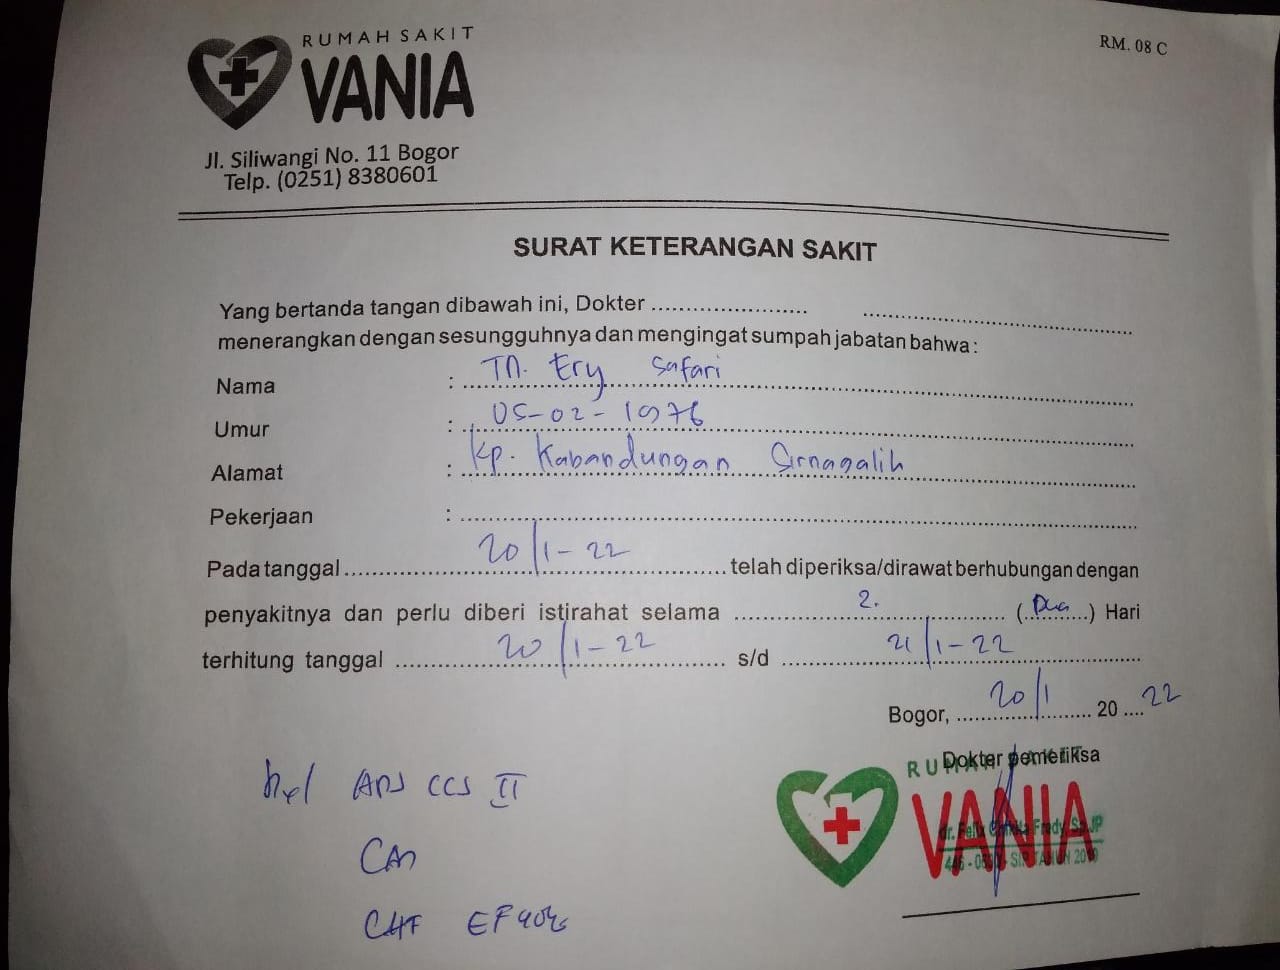 RUMAH SAKIT
VANIA
RM. 08 C
Jl. Siliwangi No. 11 Bogor
Telp. (0251) 8380601
SURAT KETERANGAN SAKIT
Yang bertanda tangan dibawah ini, Dokter
menerangkan dengan sesungguhnya dan mengingat sumpah jabatan bahwa :
Nama : Tn. Ery Safari
Umur : 05-02-1976
Alamat : Kp. Kabandungan Sirnagalih
Pekerjaan :
Pada tanggal 20/1-22 telah diperiksa/dirawat berhubungan dengan
penyakitnya dan perlu diberi istirahat selama 2. (Dua) Hari
terhitung tanggal 20/1-22 s/d 21/1-22
Bogor, 20/1 20 22
Dokter pemeriksa
RUMAH SAKIT
VANIA
dr. Felix Frady, SpJP
SIP TAHUN
APS CCS II
CAD
CHF EF 40%